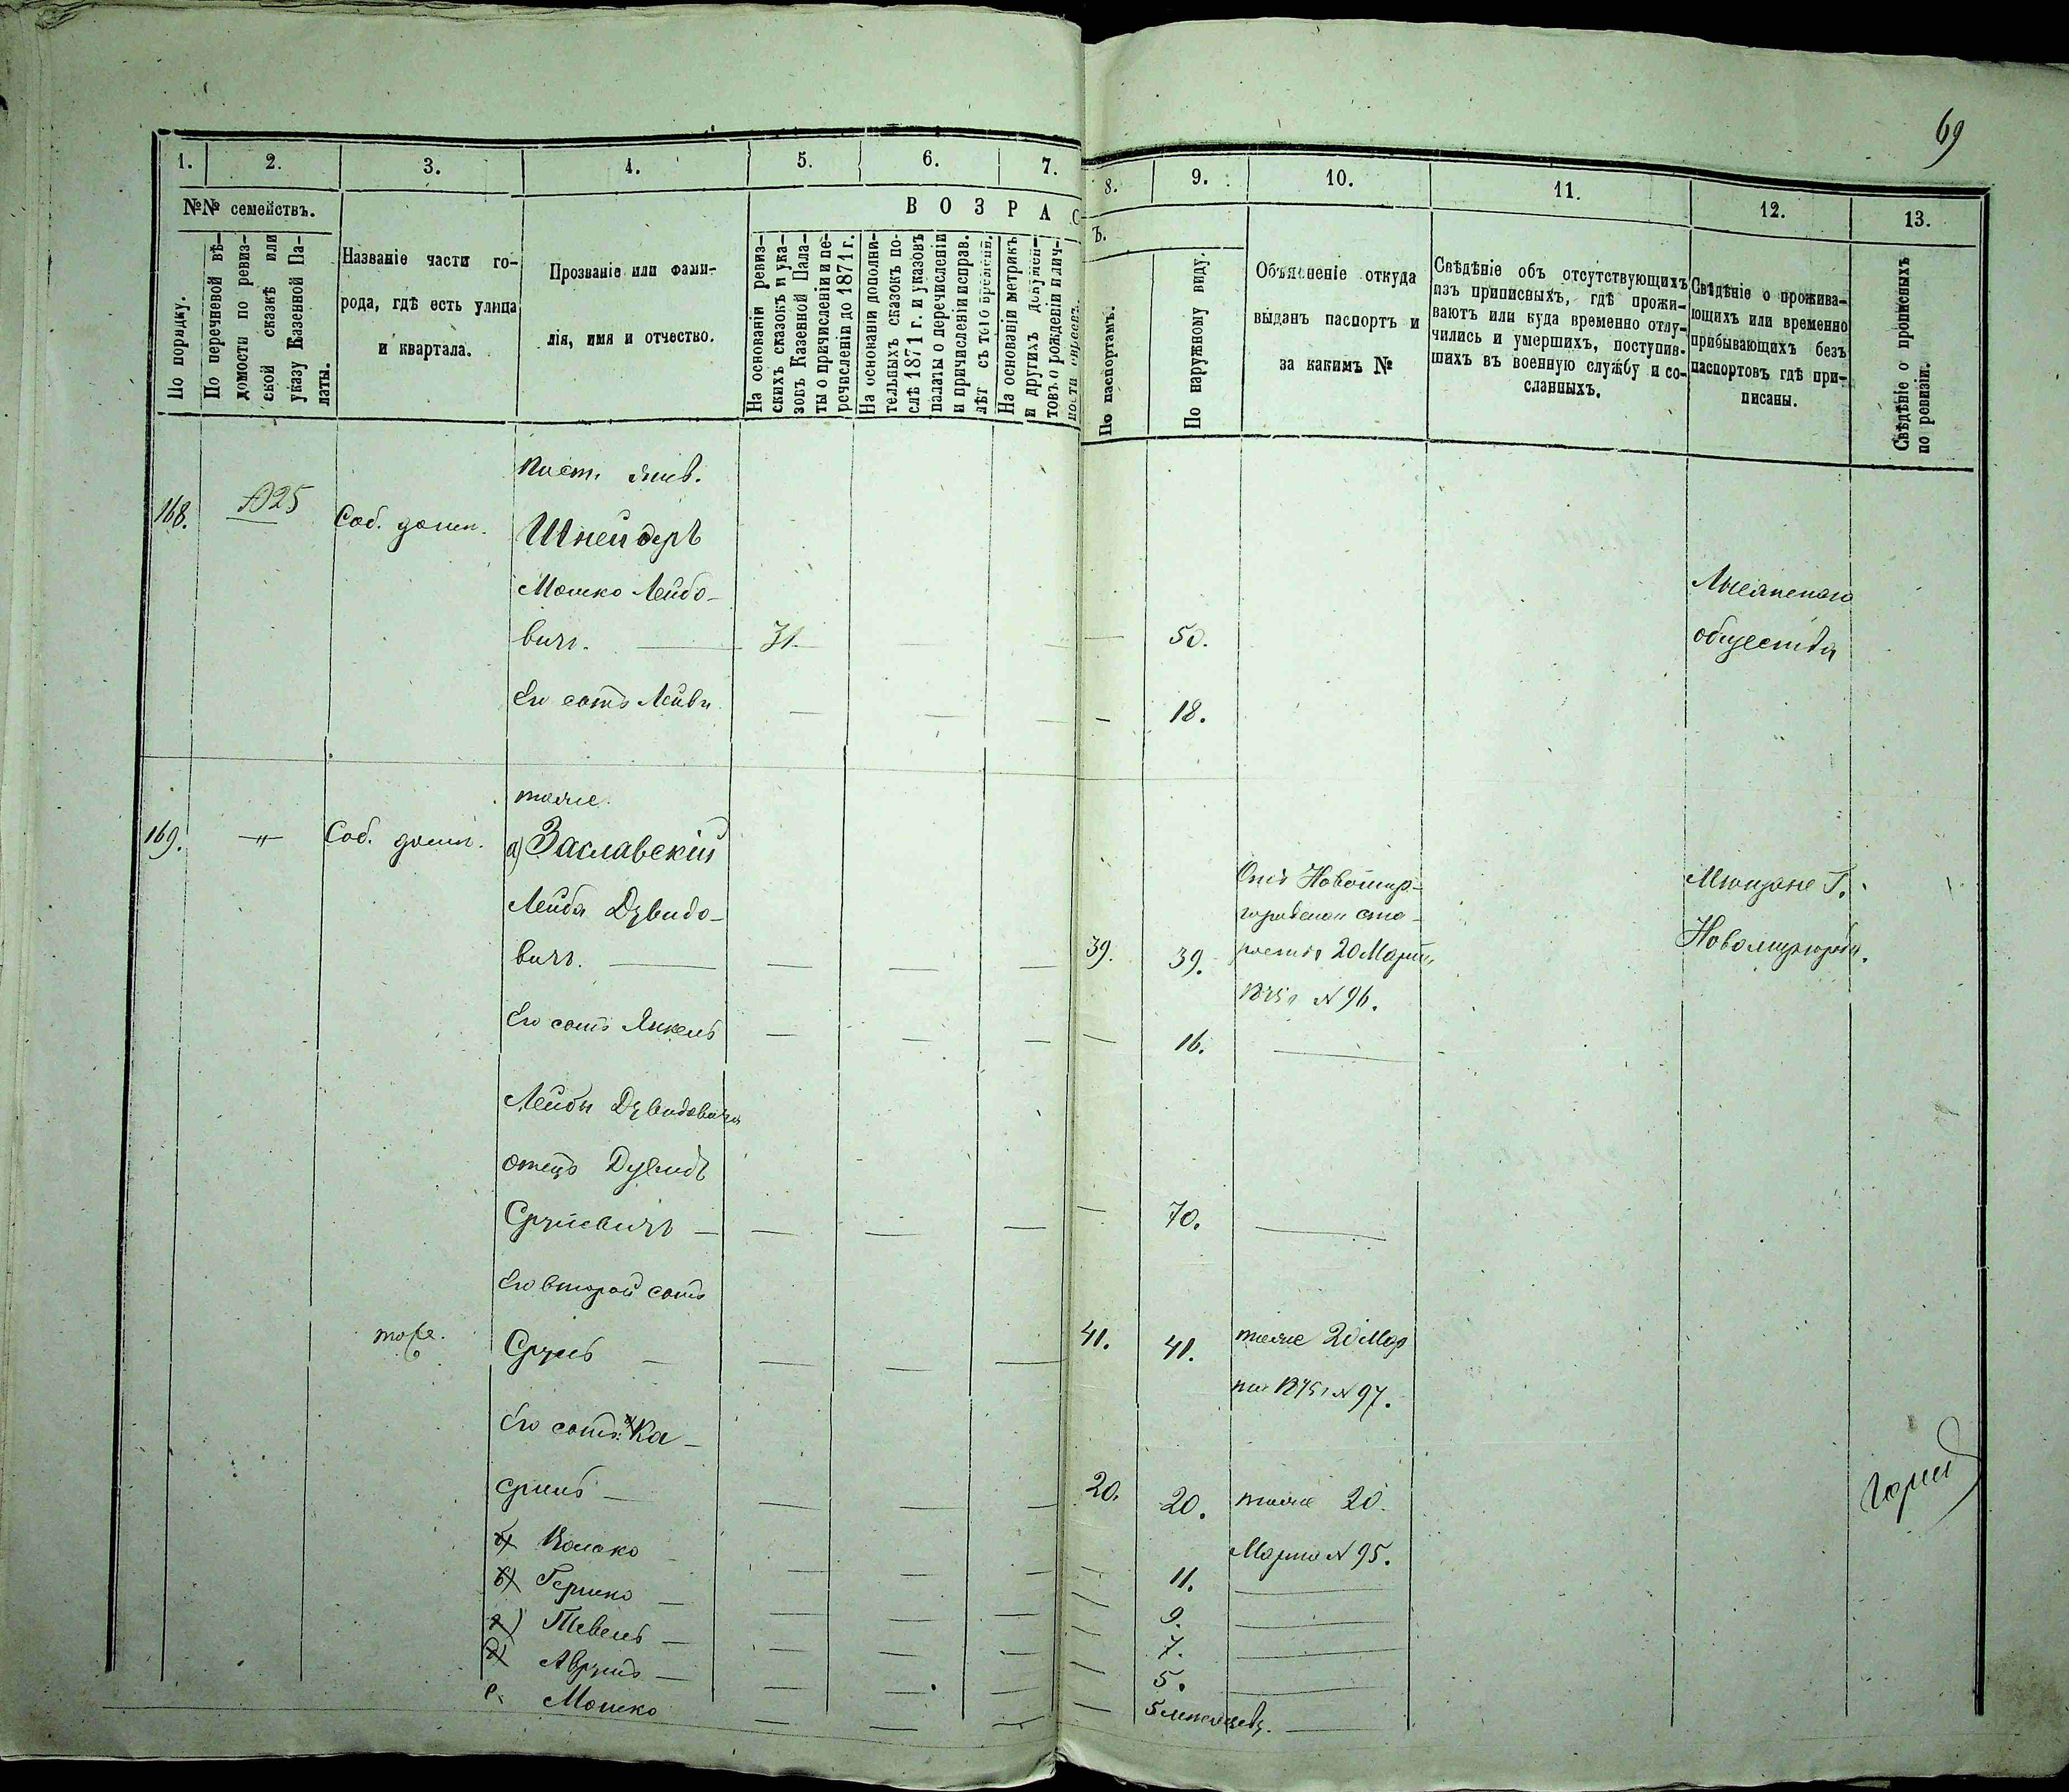 69
1. 2. 3. 4. 5. 6. 7. 8. 9. 10. 11. 12. 13.
№№ семействъ.
ВОЗРАСТЪ.
По порядку.
По перечневой вѣ-
домости по ревиз-
ской сказкѣ или
указу Казенной Па-
латы.
Названіе части го-
рода, гдѣ есть улица
и квартала.
Прозваніе или фами-
лія, имя и отчество.
На основаніи ревиз-
скихъ сказокъ и ука-
зовъ Казенной Пала-
ты о причисленіи и пе-
речисленіи до 1871 г.
На основаніи дополни-
тельныхъ сказокъ по-
слѣ 1871 г. и указовъ
палаты о перечисленіи
и причисленіи исправ.
лѣт съ того времени.
На основаніи метрикъ
и другихъ докумен-
товъ о рожденіи и лич-
ности евреевъ.
По паспортамъ.
По наружному виду.
Объясненіе откуда
выданъ паспортъ и
за какимъ №
Свѣдѣніе объ отсутствующихъ
изъ приписныхъ, гдѣ прожи-
ваютъ или куда временно отлу-
чились и умершихъ, поступив-
шихъ въ военную службу и со-
сланныхъ.
Свѣдѣніе о прожива-
ющихъ или временно
прибывающихъ безъ
паспортовъ гдѣ при-
писаны.
Свѣдѣніе о прописныхъ
по ревизіи.
168. Соб. домъ.
Шнейдеръ
Мошко Лейбо-
вичъ. — 31. — — — 50.
общества
Его сынъ — — — — 18.
тоже.
169. —„— Соб. домъ. а) Заславскій
Лейба Дувидо-
вичъ. — — — — 39. 39.
20 Марта
№ 96.
Мѣщане Г.
Новомиргорода.
Его сынъ Янкель — — — — 16. —
Лейбы Дувидовича
отецъ Дувидъ
Срулевичъ — — — — — 70. —
Его второй сынъ
тоже. Сруль — — — — 41. 41. тоже 20 Мар
та № 97.
Его сынъ: Ка-
сриль — — — — 20. 20. тоже 20.
Марта № 95.
— — — — 11. —
в) Гершко — — — — — 9. —
г) Тевель — — — — — 7. —
д) Аврумъ — — — — — 5. —
е. Мошко — — — — 5 мѣсяцевъ. —